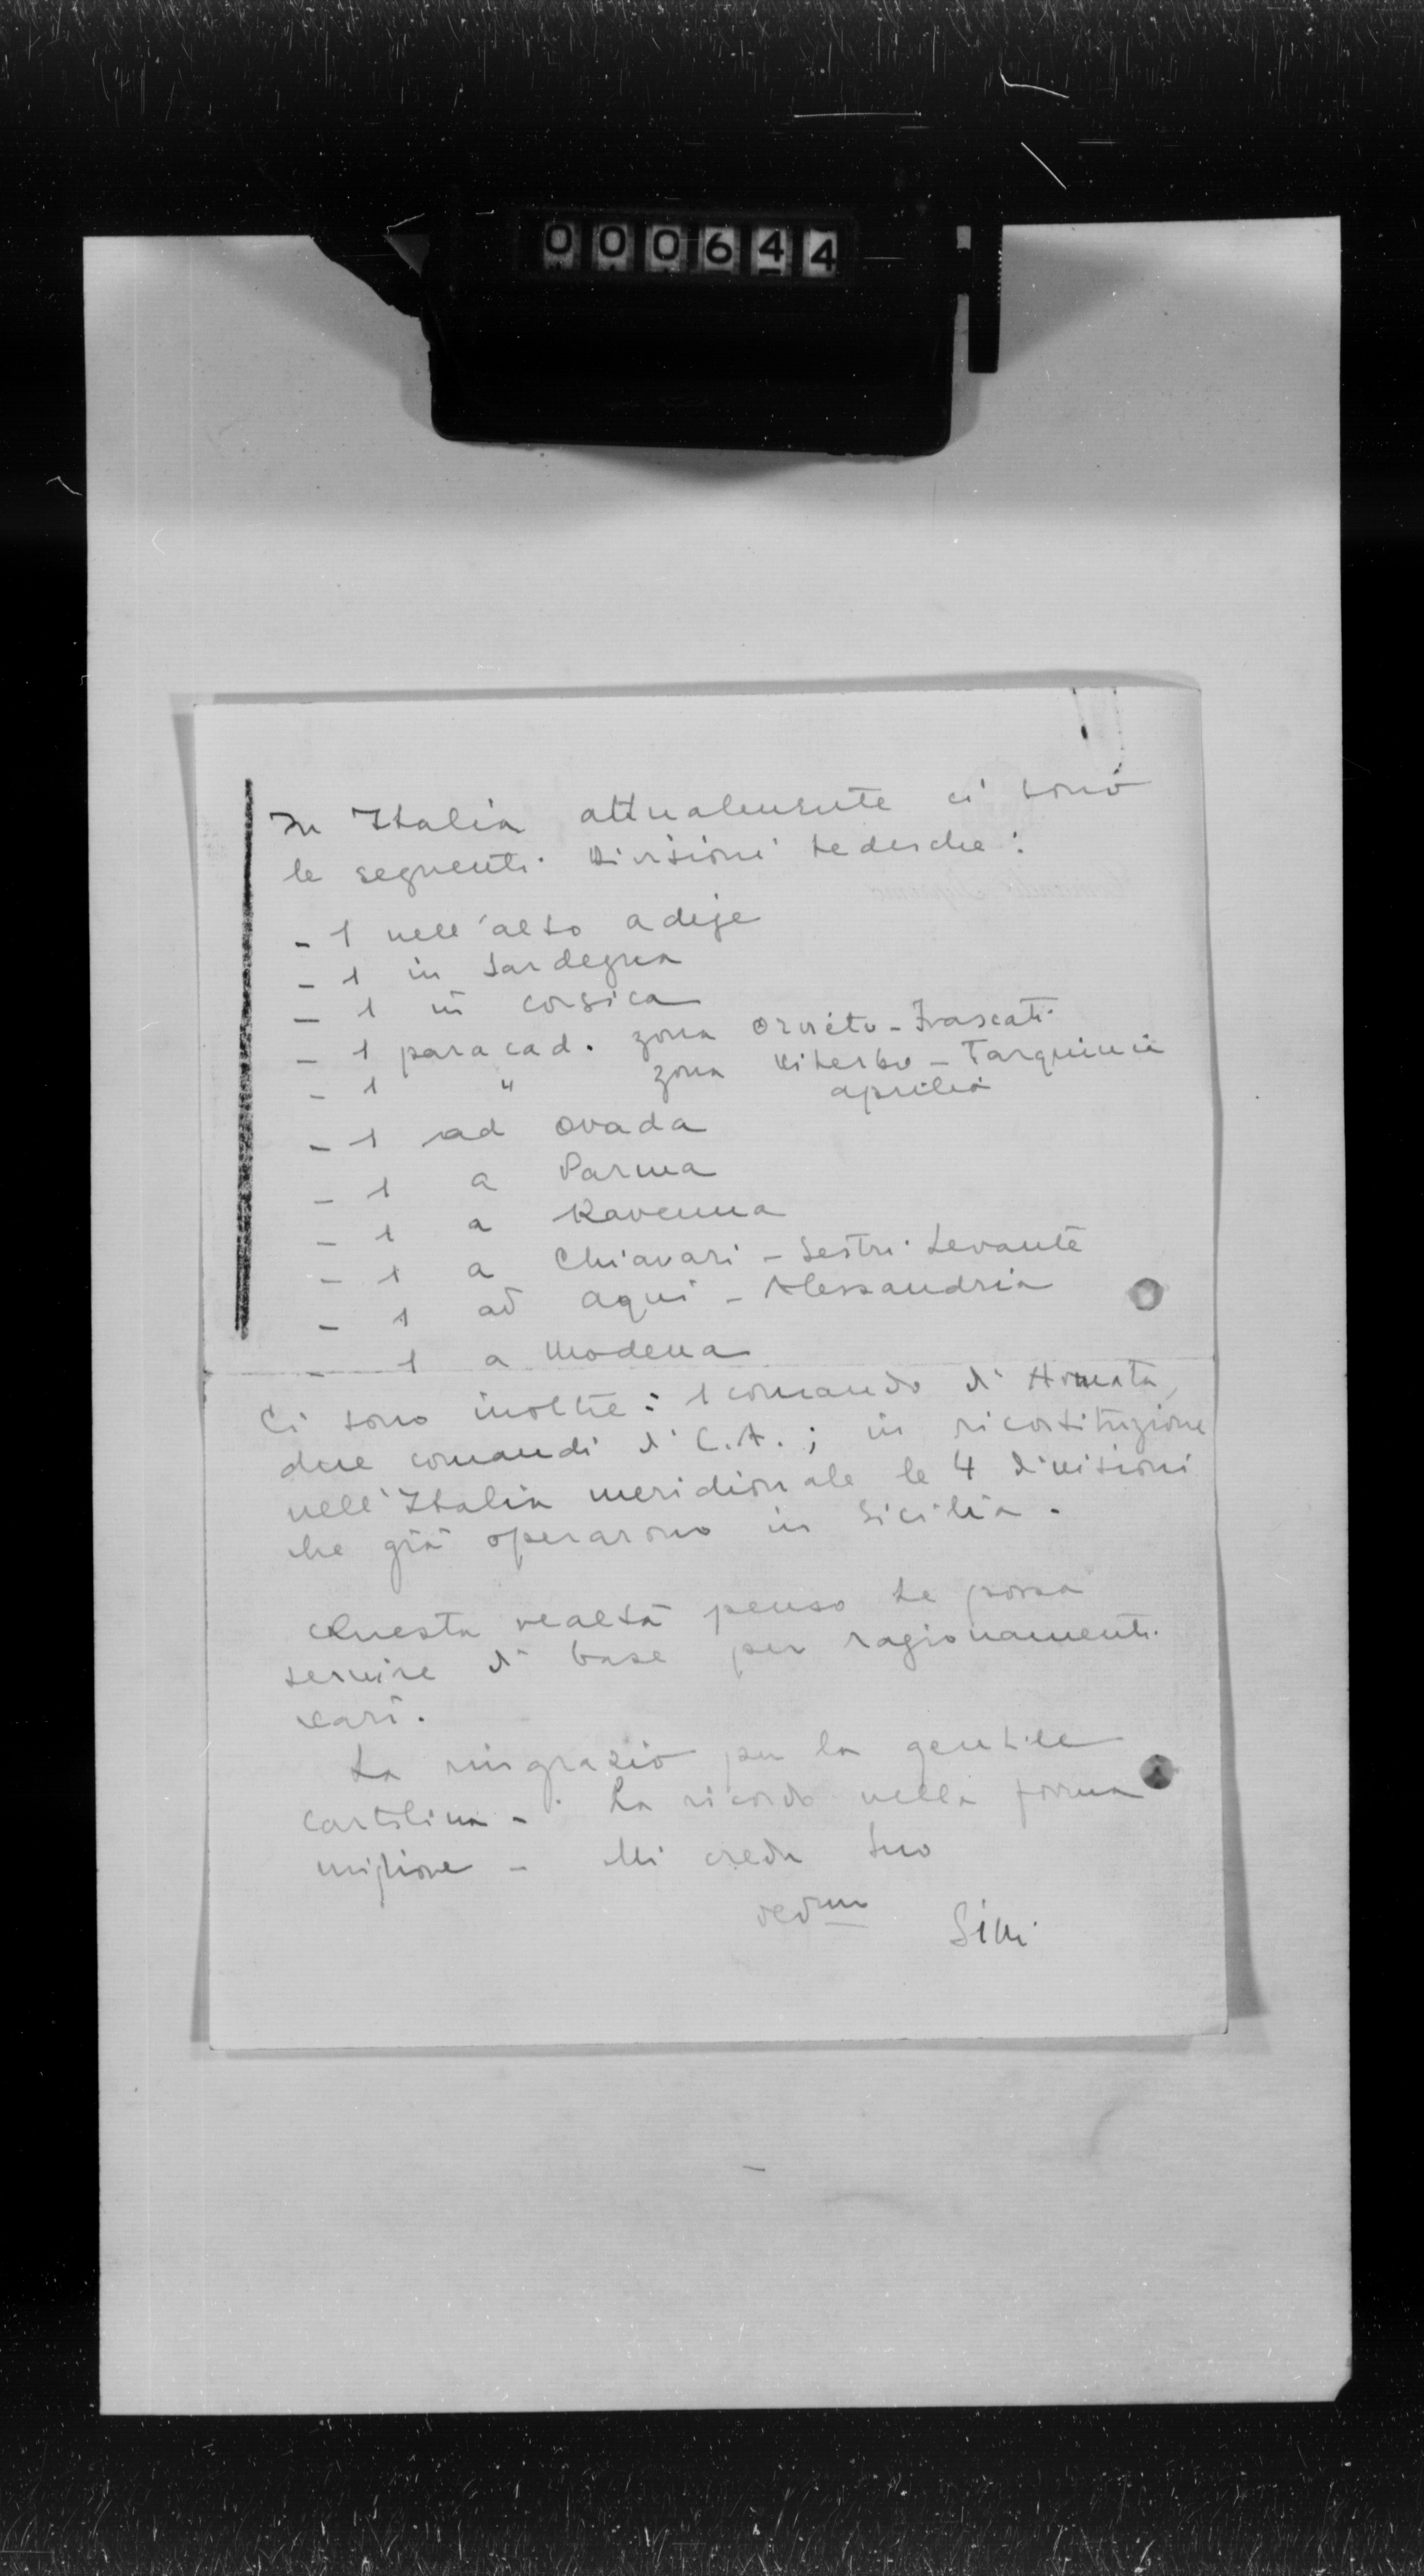 000644
In Italia attualmente ci sono
le seguenti divisioni tedesche:
- 1 nell'alto adige
- 1 in Sardegna
- 1 in corsica
- 1 paracad. zona Orvieto - Frascati
- 1 " zona Viterbo - Tarquinia
aprilia
- 1 ad Ovada
- 1 a Parma
- 1 a Ravenna
- 1 a Chiavari - Sestri Levante
- 1 ad Aqui - Alessandria
- 1 a Modena
Ci sono inoltre: 1 comando di Armata,
due comandi di C.A.; in ricostituzione
nell'Italia meridionale le 4 divisioni
che già operarono in Sicilia.
Questa realtà penso Le possa
servire di base per ragionamenti
vari.
La ringrazio per la gentile
cartolina - La ricordo nella forma
migliore - Mi creda Suo